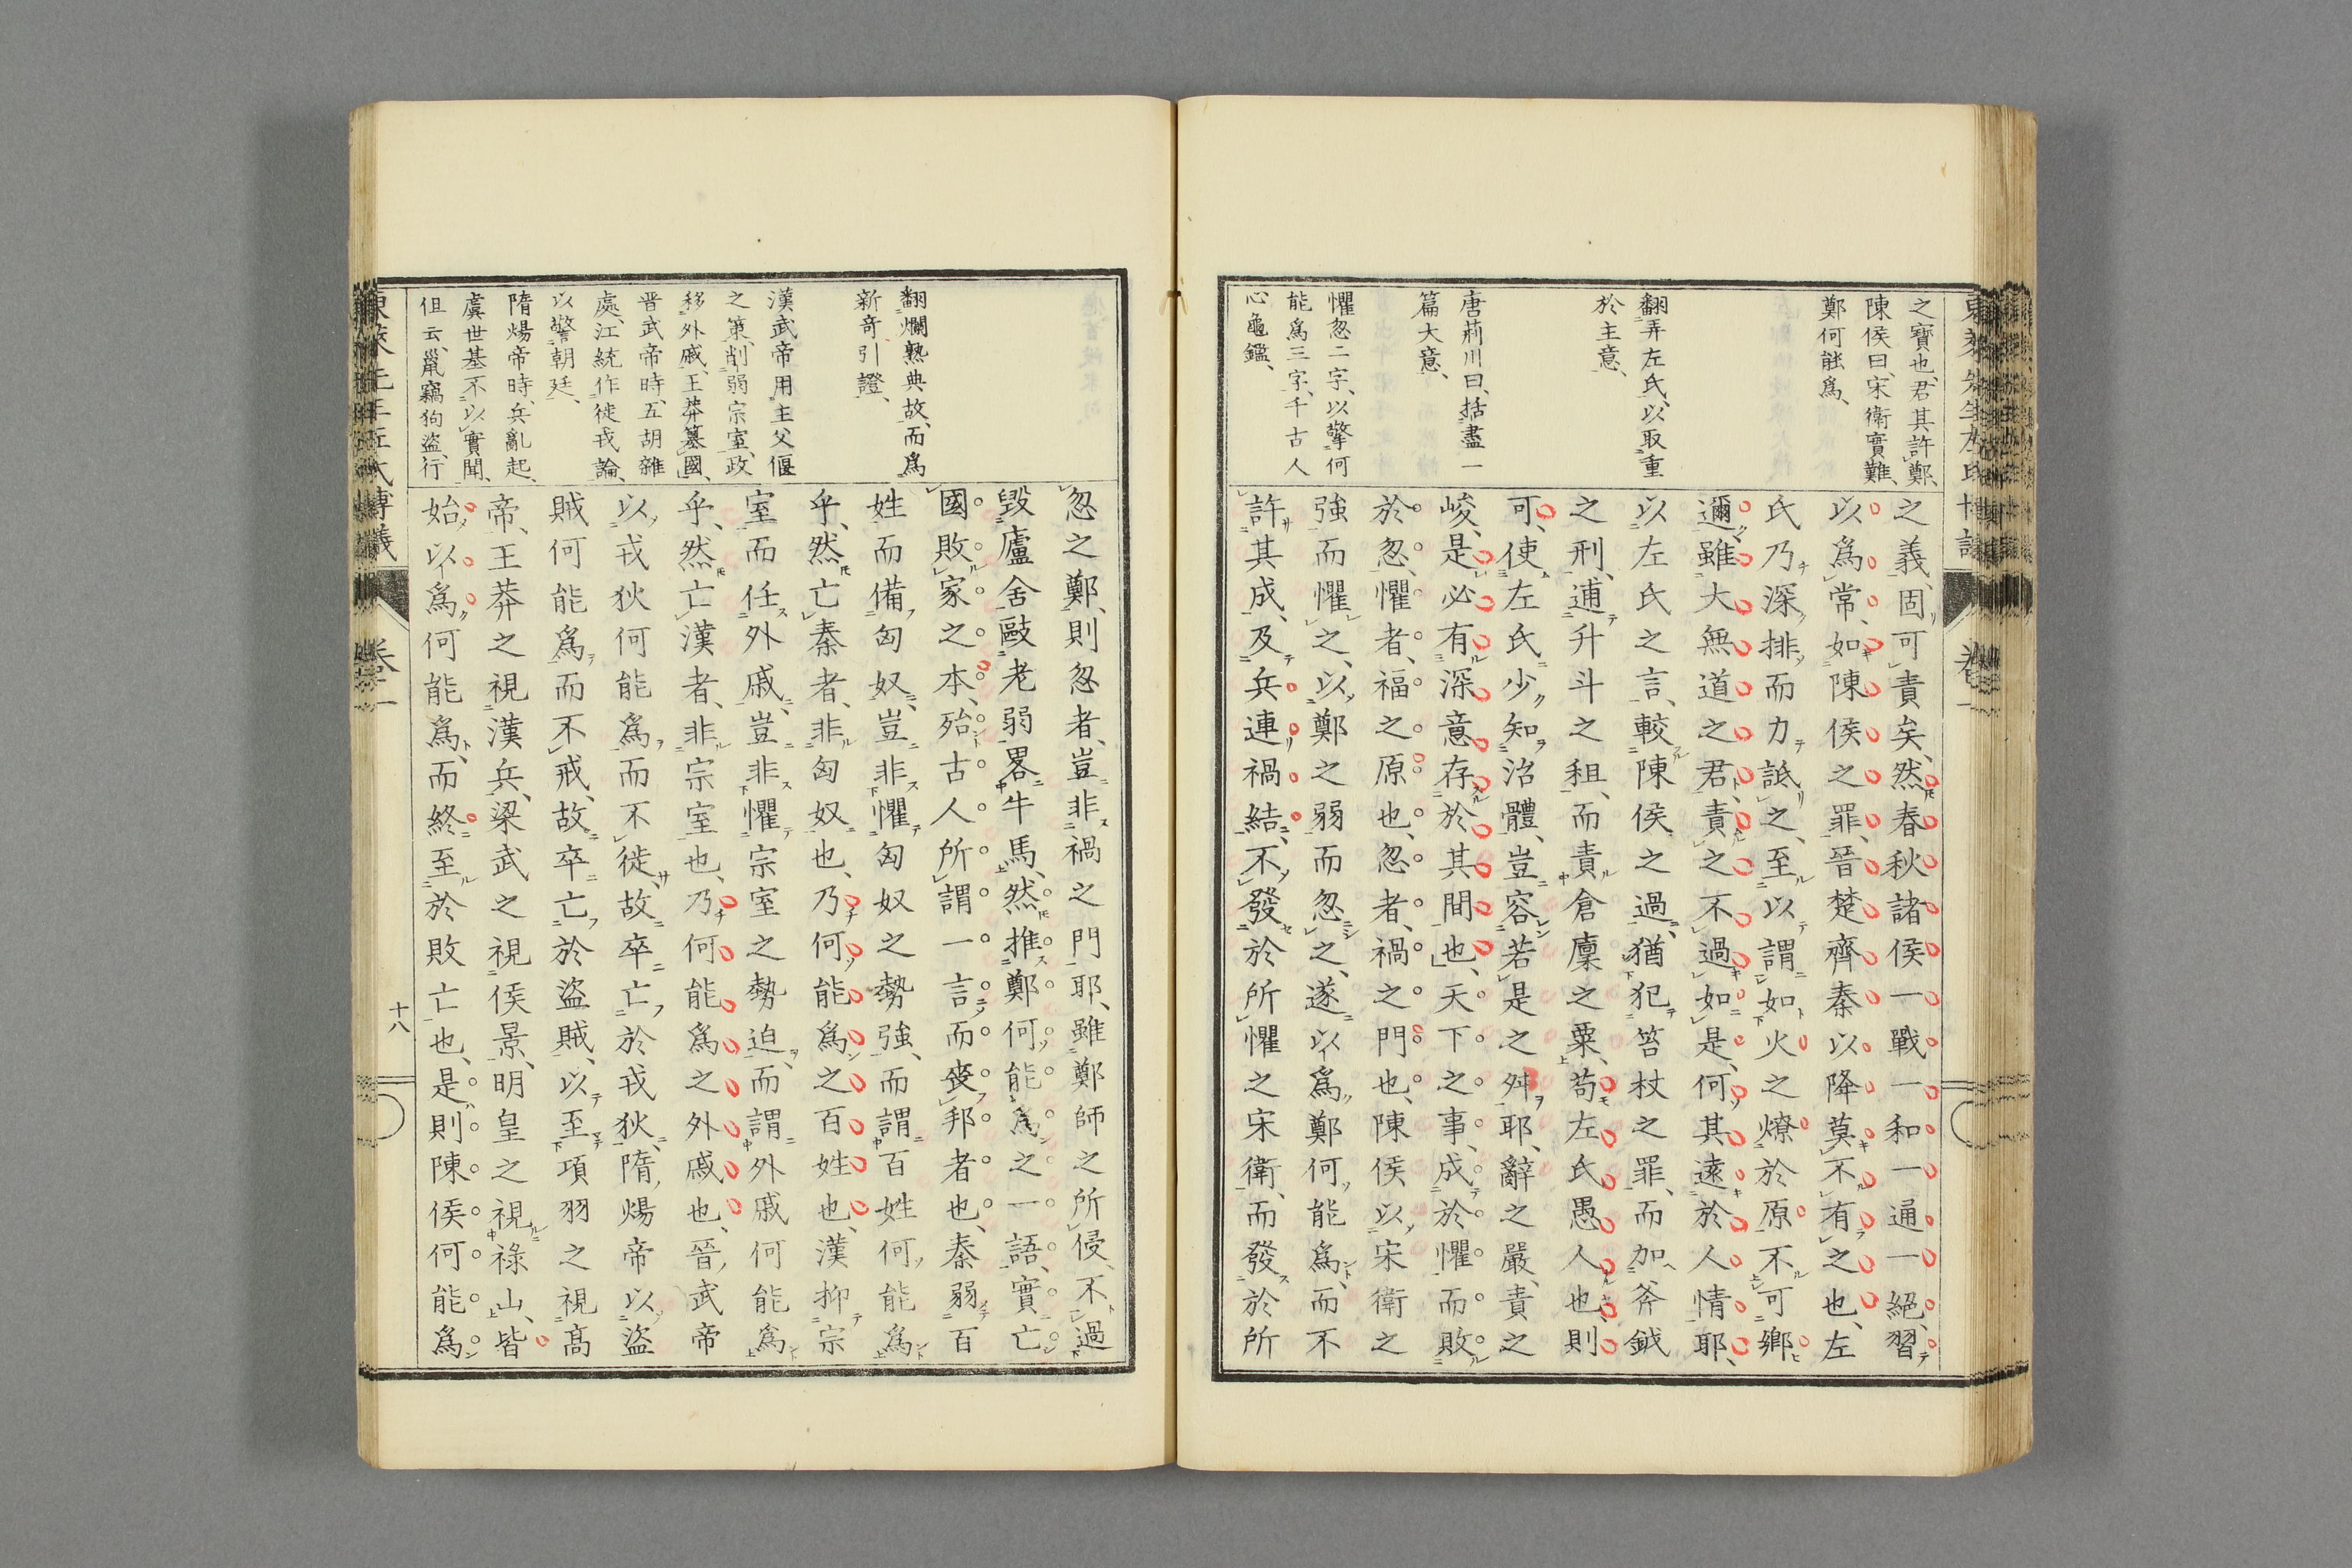 之寶也、君其許鄭、
陳侯曰、宋衛實難、
鄭何能爲、
翻弄左氏、以取重
於主意、
唐荊川曰、括盡一
篇大意、
懼忽二字、以擎何
能爲三字、千古人
心龜鑑、
之義、固可責矣、然春秋諸侯一戰一和一通一絕、習
以爲常、如陳侯之罪、晉楚齊秦以降莫不有之也、左
氏乃深排而力詆之、至以謂如火之燎於原不可鄉
邇、雖大無道之君、責之不過如是、何其遠於人情耶、
以左氏之言、較陳侯之過、猶犯笞杖之罪、而加斧鉞
之刑、逋升斗之租、而責倉廩之粟、苟左氏愚人也、則
可、使左氏少知治體、豈容若是之舛耶、辭之嚴、責之
峻、是必有深意存於其間也、天下之事、成於懼而敗
於忽、懼者、福之原也、忽者、禍之門也、陳侯以宋衛之
強而懼之、以鄭之弱而忽之、遂以爲鄭何能爲、而不
許其成、及兵連禍結、不發於所懼之宋衛、而發於所
翻爛熟典故、而爲
新奇引證、
漢武帝用主父偃
之策、削弱宗室、政
移外戚、王莽簒國、
晋武帝時、五胡雜
處、江統作徙戎論、
以警朝廷、
隋煬帝時、兵亂起、
虞世基不以實聞、
但云、鼠竊狗盜、行
忽之鄭、則忽者、豈非禍之門耶、雖鄭師之所侵、不過
毀廬舍毆老弱畧牛馬、然推鄭何能爲之一語、實亡
國敗家之本、殆古人所謂一言而喪邦者也、秦弱百
姓而備匈奴、豈非懼匈奴之勢強、而謂百姓何能爲
乎、然亡秦者、非匈奴也、乃何能爲之百姓也、漢抑宗
室而任外戚、豈非懼宗室之勢迫、而謂外戚何能爲
乎、然亡漢者、非宗室也、乃何能爲之外戚也、晉武帝
以戎狄何能爲而不徙、故卒亡於戎狄、隋煬帝以盜
賊何能爲而不戒、故卒亡於盜賊、以至項羽之視高
帝、王莽之視漢兵、梁武之視侯景、明皇之視祿山、皆
始以爲何能爲、而終至於敗亡也、是則陳侯何能爲
十八